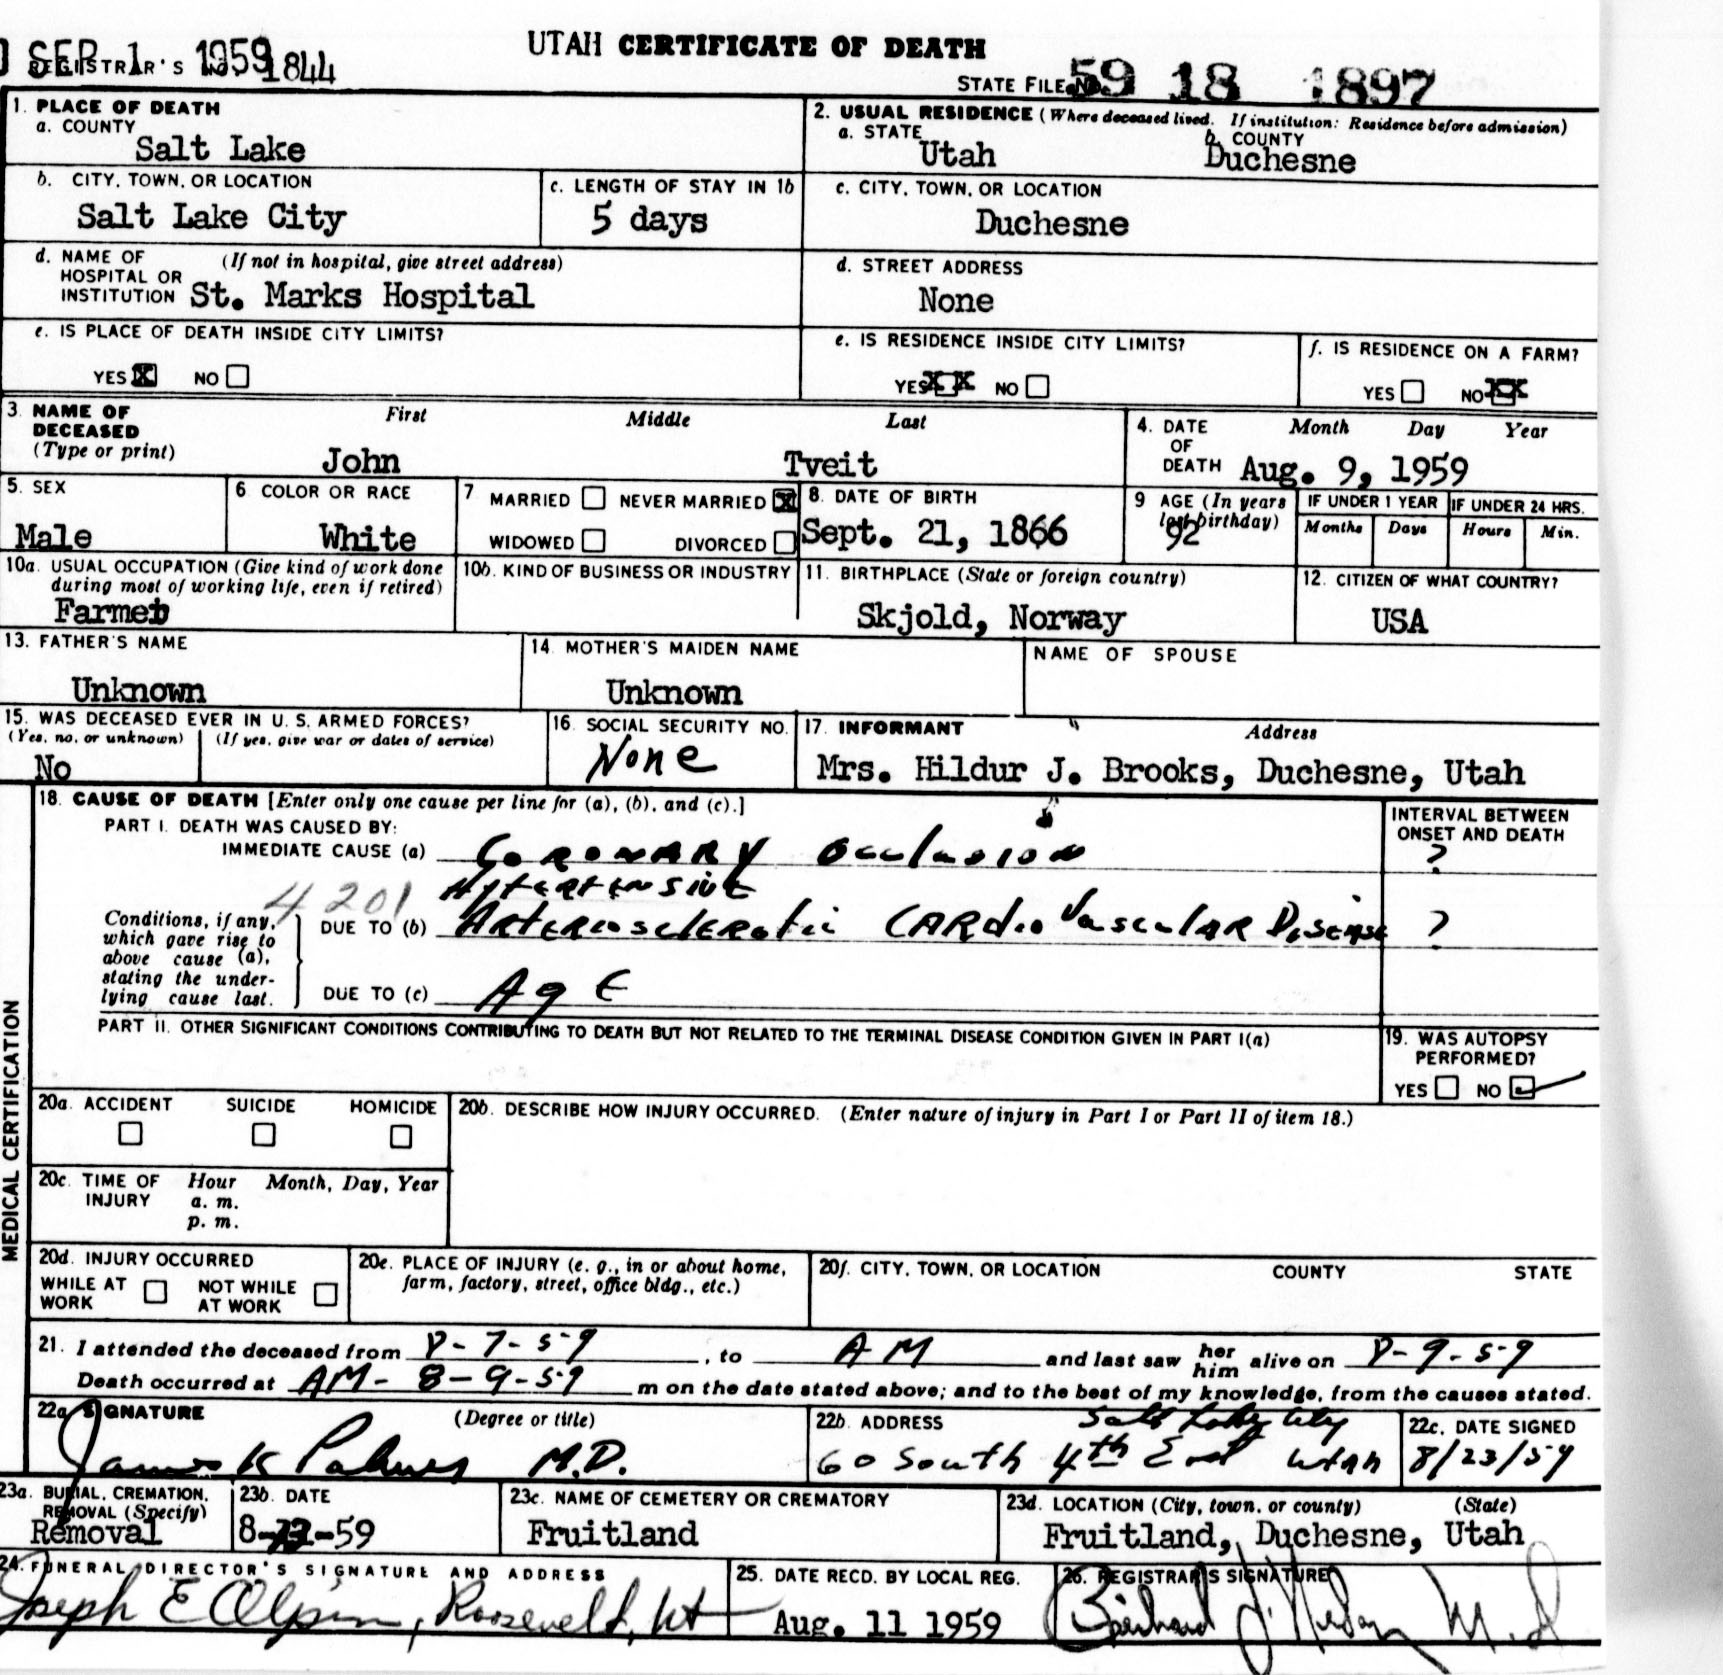 UTAH CERTIFICATE OF DEATH
SEP 1 1959
REGISTRAR'S NO. 1844
STATE FILE NO. 59 18 1897
1. PLACE OF DEATH
a. COUNTY
Salt Lake
2. USUAL RESIDENCE (Where deceased lived. If institution: Residence before admission)
a. STATE b. COUNTY
Utah Duchesne
b. CITY, TOWN, OR LOCATION
Salt Lake City
c. LENGTH OF STAY IN 1b
5 days
c. CITY, TOWN, OR LOCATION
Duchesne
d. NAME OF (If not in hospital, give street address)
HOSPITAL OR
INSTITUTION St. Marks Hospital
d. STREET ADDRESS
None
e. IS PLACE OF DEATH INSIDE CITY LIMITS?
YES X NO
e. IS RESIDENCE INSIDE CITY LIMITS?
YES X X NO
f. IS RESIDENCE ON A FARM?
YES NO XX
3. NAME OF First Middle Last
DECEASED
(Type or print)
John Tveit
4. DATE Month Day Year
OF
DEATH Aug. 9, 1959
5. SEX
Male
6 COLOR OR RACE
White
7 MARRIED NEVER MARRIED X
WIDOWED DIVORCED
8. DATE OF BIRTH
Sept. 21, 1866
9 AGE (In years
last birthday)
92
IF UNDER 1 YEAR IF UNDER 24 HRS.
Months Days Hours Min.
10a. USUAL OCCUPATION (Give kind of work done
during most of working life, even if retired)
Farmer
10b. KIND OF BUSINESS OR INDUSTRY
11. BIRTHPLACE (State or foreign country)
Skjold, Norway
12. CITIZEN OF WHAT COUNTRY?
USA
13. FATHER'S NAME
Unknown
14. MOTHER'S MAIDEN NAME
Unknown
NAME OF SPOUSE
15. WAS DECEASED EVER IN U. S. ARMED FORCES?
(Yes, no, or unknown) (If yes, give war or dates of service)
No
16. SOCIAL SECURITY NO.
None
17. INFORMANT Address
Mrs. Hildur J. Brooks, Duchesne, Utah
MEDICAL CERTIFICATION
18. CAUSE OF DEATH [Enter only one cause per line for (a), (b), and (c).]
INTERVAL BETWEEN
ONSET AND DEATH
PART I. DEATH WAS CAUSED BY:
IMMEDIATE CAUSE (a) Coronary Occlusion ?
4201 Hypertensive
Conditions, if any,
which gave rise to
above cause (a),
stating the under-
lying cause last.
DUE TO (b) Arteriosclerotic Cardio Vascular Disease ?
DUE TO (c) Age
PART II. OTHER SIGNIFICANT CONDITIONS CONTRIBUTING TO DEATH BUT NOT RELATED TO THE TERMINAL DISEASE CONDITION GIVEN IN PART I(a)
19. WAS AUTOPSY
PERFORMED?
YES NO
20a. ACCIDENT SUICIDE HOMICIDE
20b. DESCRIBE HOW INJURY OCCURRED. (Enter nature of injury in Part I or Part II of item 18.)
20c. TIME OF Hour Month, Day, Year
INJURY a. m.
p. m.
20d. INJURY OCCURRED
WHILE AT NOT WHILE
WORK AT WORK
20e. PLACE OF INJURY (e. g., in or about home,
farm, factory, street, office bldg., etc.)
20f. CITY, TOWN, OR LOCATION COUNTY STATE
21. I attended the deceased from 8-7-59, to AM and last saw her him alive on 8-9-59
Death occurred at AM- 8-9-59 m on the date stated above; and to the best of my knowledge, from the causes stated.
22a SIGNATURE (Degree or title)
James K Palmer M.D.
22b. ADDRESS Salt Lake City
60 South 4th East Utah
22c. DATE SIGNED
8/23/59
23a. BURIAL, CREMATION,
REMOVAL (Specify)
Removal
23b. DATE
8-12-59
23c. NAME OF CEMETERY OR CREMATORY
Fruitland
23d. LOCATION (City, town, or county) (State)
Fruitland, Duchesne, Utah
24. FUNERAL DIRECTOR'S SIGNATURE AND ADDRESS
Joseph E Olpin, Roosevelt, Ut
25. DATE RECD. BY LOCAL REG.
Aug. 11 1959
26. REGISTRAR'S SIGNATURE
M.D